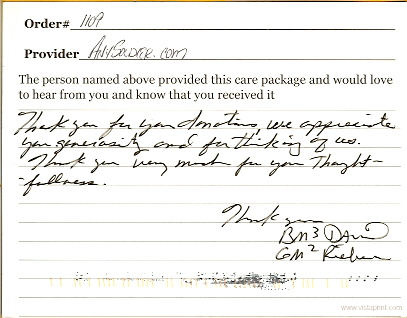 Order# 1109
Provider AnySoldier.com
The person named above provided this care package and would love
to hear from you and know that you received it
Thank you for your donations, we appreciate
your generosity and for thinking of us.
Thank you very much for your Thought-
fullness.
Thank you
BM3 David
GM2
www.vistaprint.com